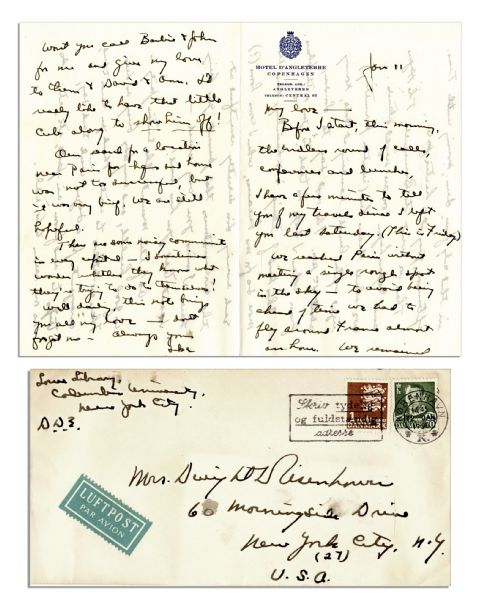 Won't you call Barbie & John
for me and give my love
to them & David & Ann. I'd
really like to have that little
cub along to show him off!
Our search for a location
near Paris for hqrs and home
was not too successful, but
I'm
hopeful.
There are some noisy communists
in every capital — I sometimes
wonder whether they know what
they're trying to do to themselves!
Well darling, this note brings
you all my love — don't
forget me — Always yours
Ike
HOTEL D'ANGLETERRE
COPENHAGEN
TELEGR. ADR.:
ANGLETERRE
TELEFON: CENTRAL 95
Jan 11
My love —
Before I start, this morning,
the endless round of calls,
conferences and lunches,
I have a few minutes to tell
you of my travels since I left
you last Saturday. (This is Friday)
We reached Paris without
meeting a single rough spot
in the sky — to avoid being
ahead of time we had to
fly around France almost
an hour. We remained
Lowe Library,
Columbia University,
New York City.
D.D.E.
Skriv tydelig
og fuldstændig
adresse
DANMARK
LUFTPOST
PAR AVION
Mrs. Dwight D Eisenhower
60 Morningside Drive
New York City, N.Y.
(27)
U.S.A.